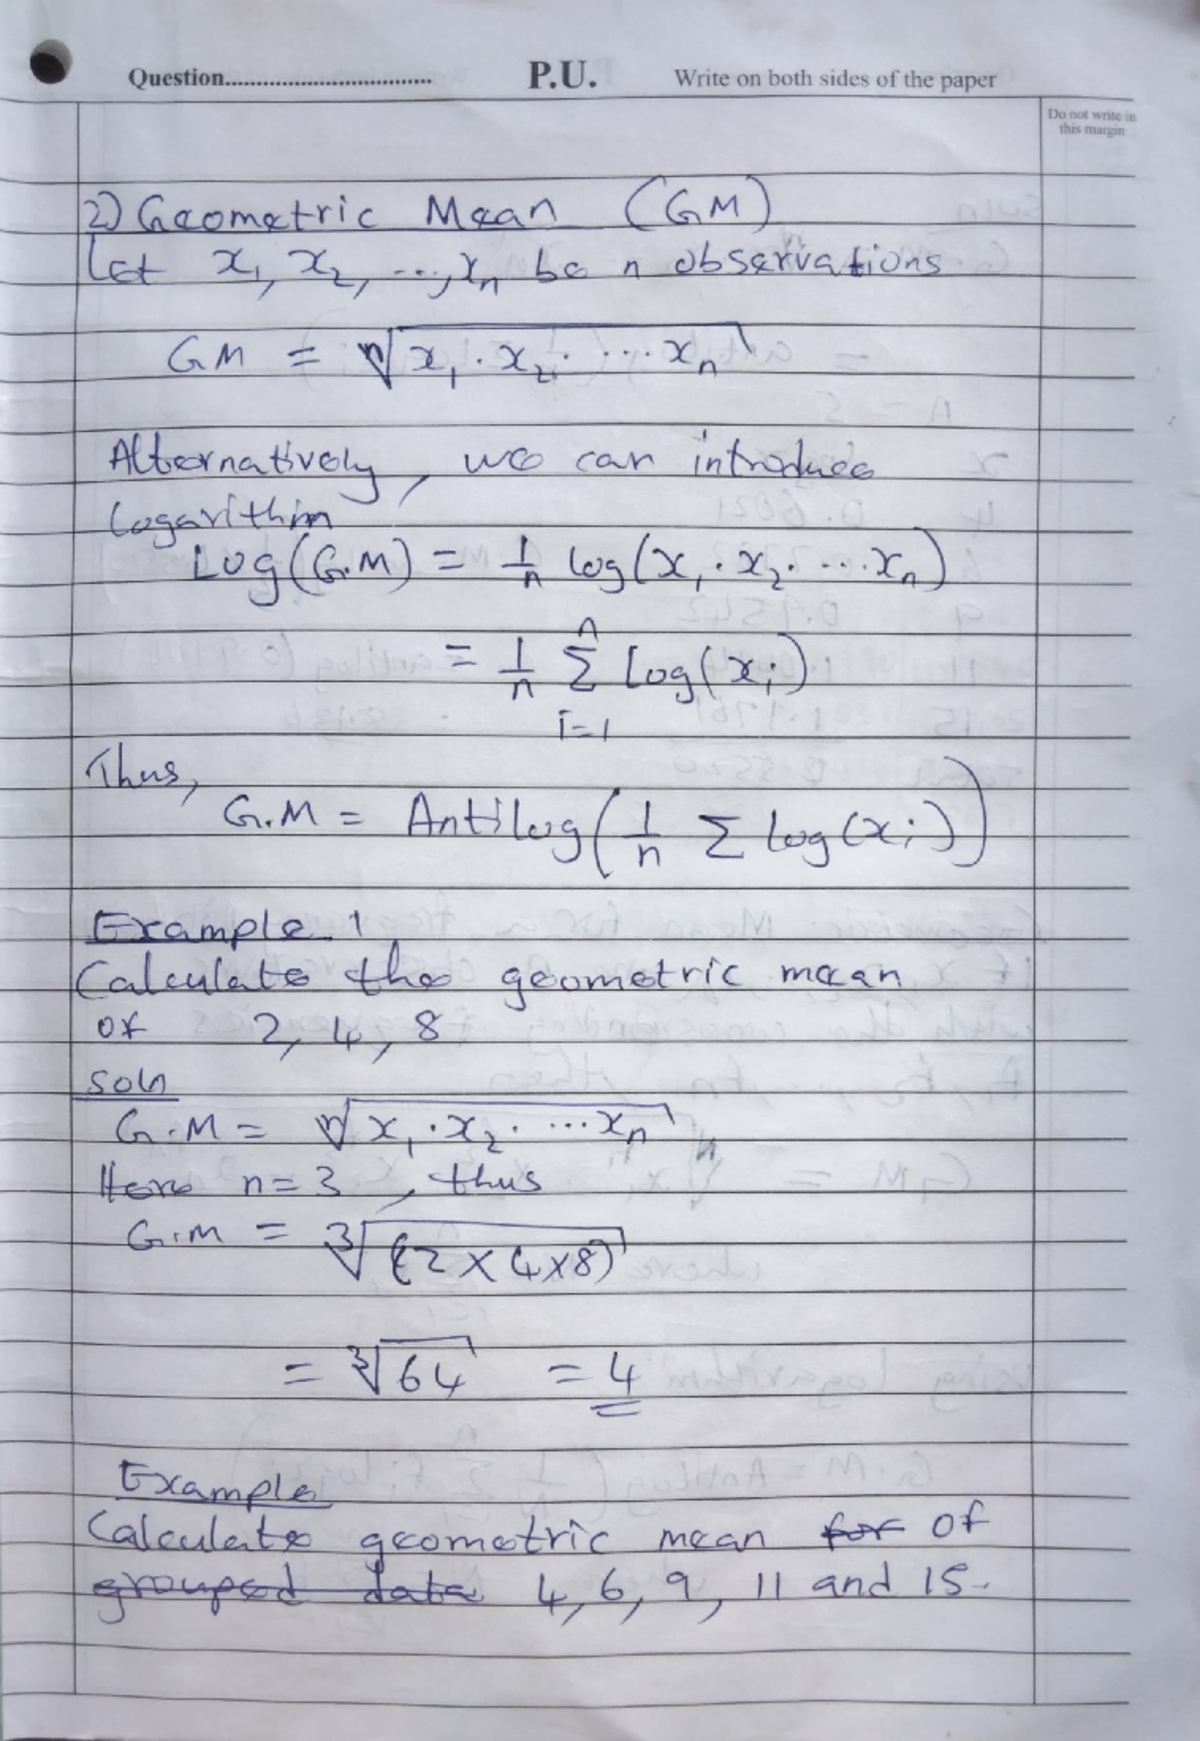 Question.................................. P.U. Write on both sides of the paper
Do not write in
this margin
2) Geometric Mean (GM)
Let x₁, x₂, ..., xₙ be n observations
GM = ⁿ√(x₁ · x₂ · ... xₙ)
Alternatively, we can introduce
Logarithm
Log(G.M) = 1/n log(x₁ · x₂ · ... xₙ)
= 1/n Σⁿᵢ₌₁ Log(xᵢ)
Thus,
G.M = Antilog(1/n Σ log(xᵢ))
Example 1
Calculate the geometric mean
of 2, 4, 8
soln
G.M = ⁿ√(x₁ · x₂ · ... xₙ)
Here n = 3, thus
G.M = ³√(2 × 4 × 8)
= ³√64 = 4
Example
Calculate geometric mean ~~for~~ of
~~grouped data~~ 4, 6, 9, 11 and 15.